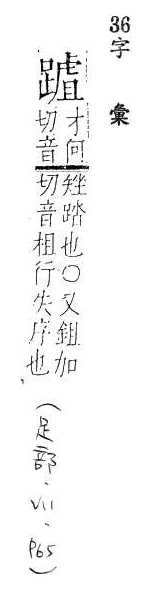 36字彙
䠡
才何
切音
矬踏也○又鉏加
切音相行失序也
(足部、VII、P65)